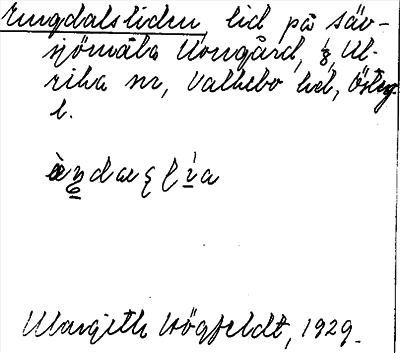 Ängdalsliden, lid på Säv-
sjömåla Kongård, ⅛, Ul-
rika sn, Valkebo hd, Östg.
l.
Margith Högfeldt, 1929.